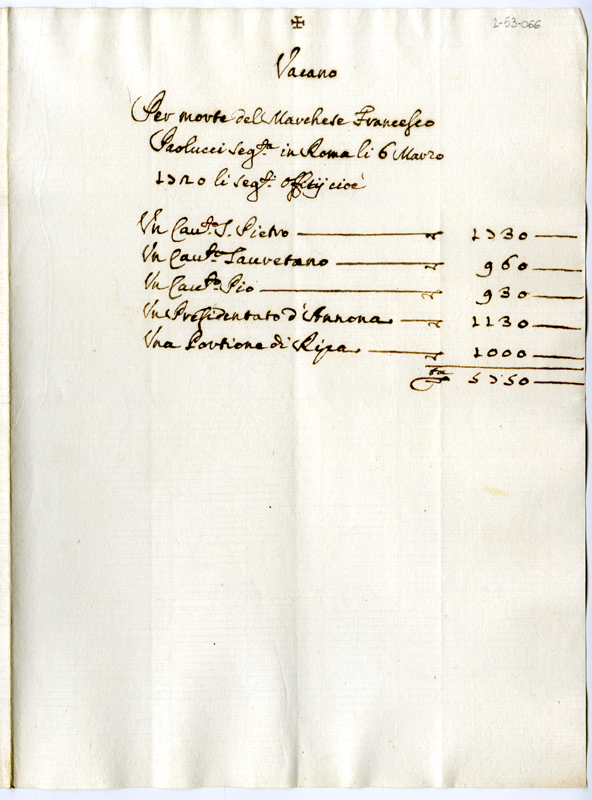 ✠
2-53-066
Vacano
Per morte del Marchese Francesco
Paolucci seg.ta in Roma li 6 Marzo
1720 li seg.ti offitij cioè
Un Cau.to S. Pietro 1730
Un Cau.to Lauretano 960
Un Cau.to Pio 930
Un Presidentato d'Annona 1130
Una Portione di Ripa 1000
5750